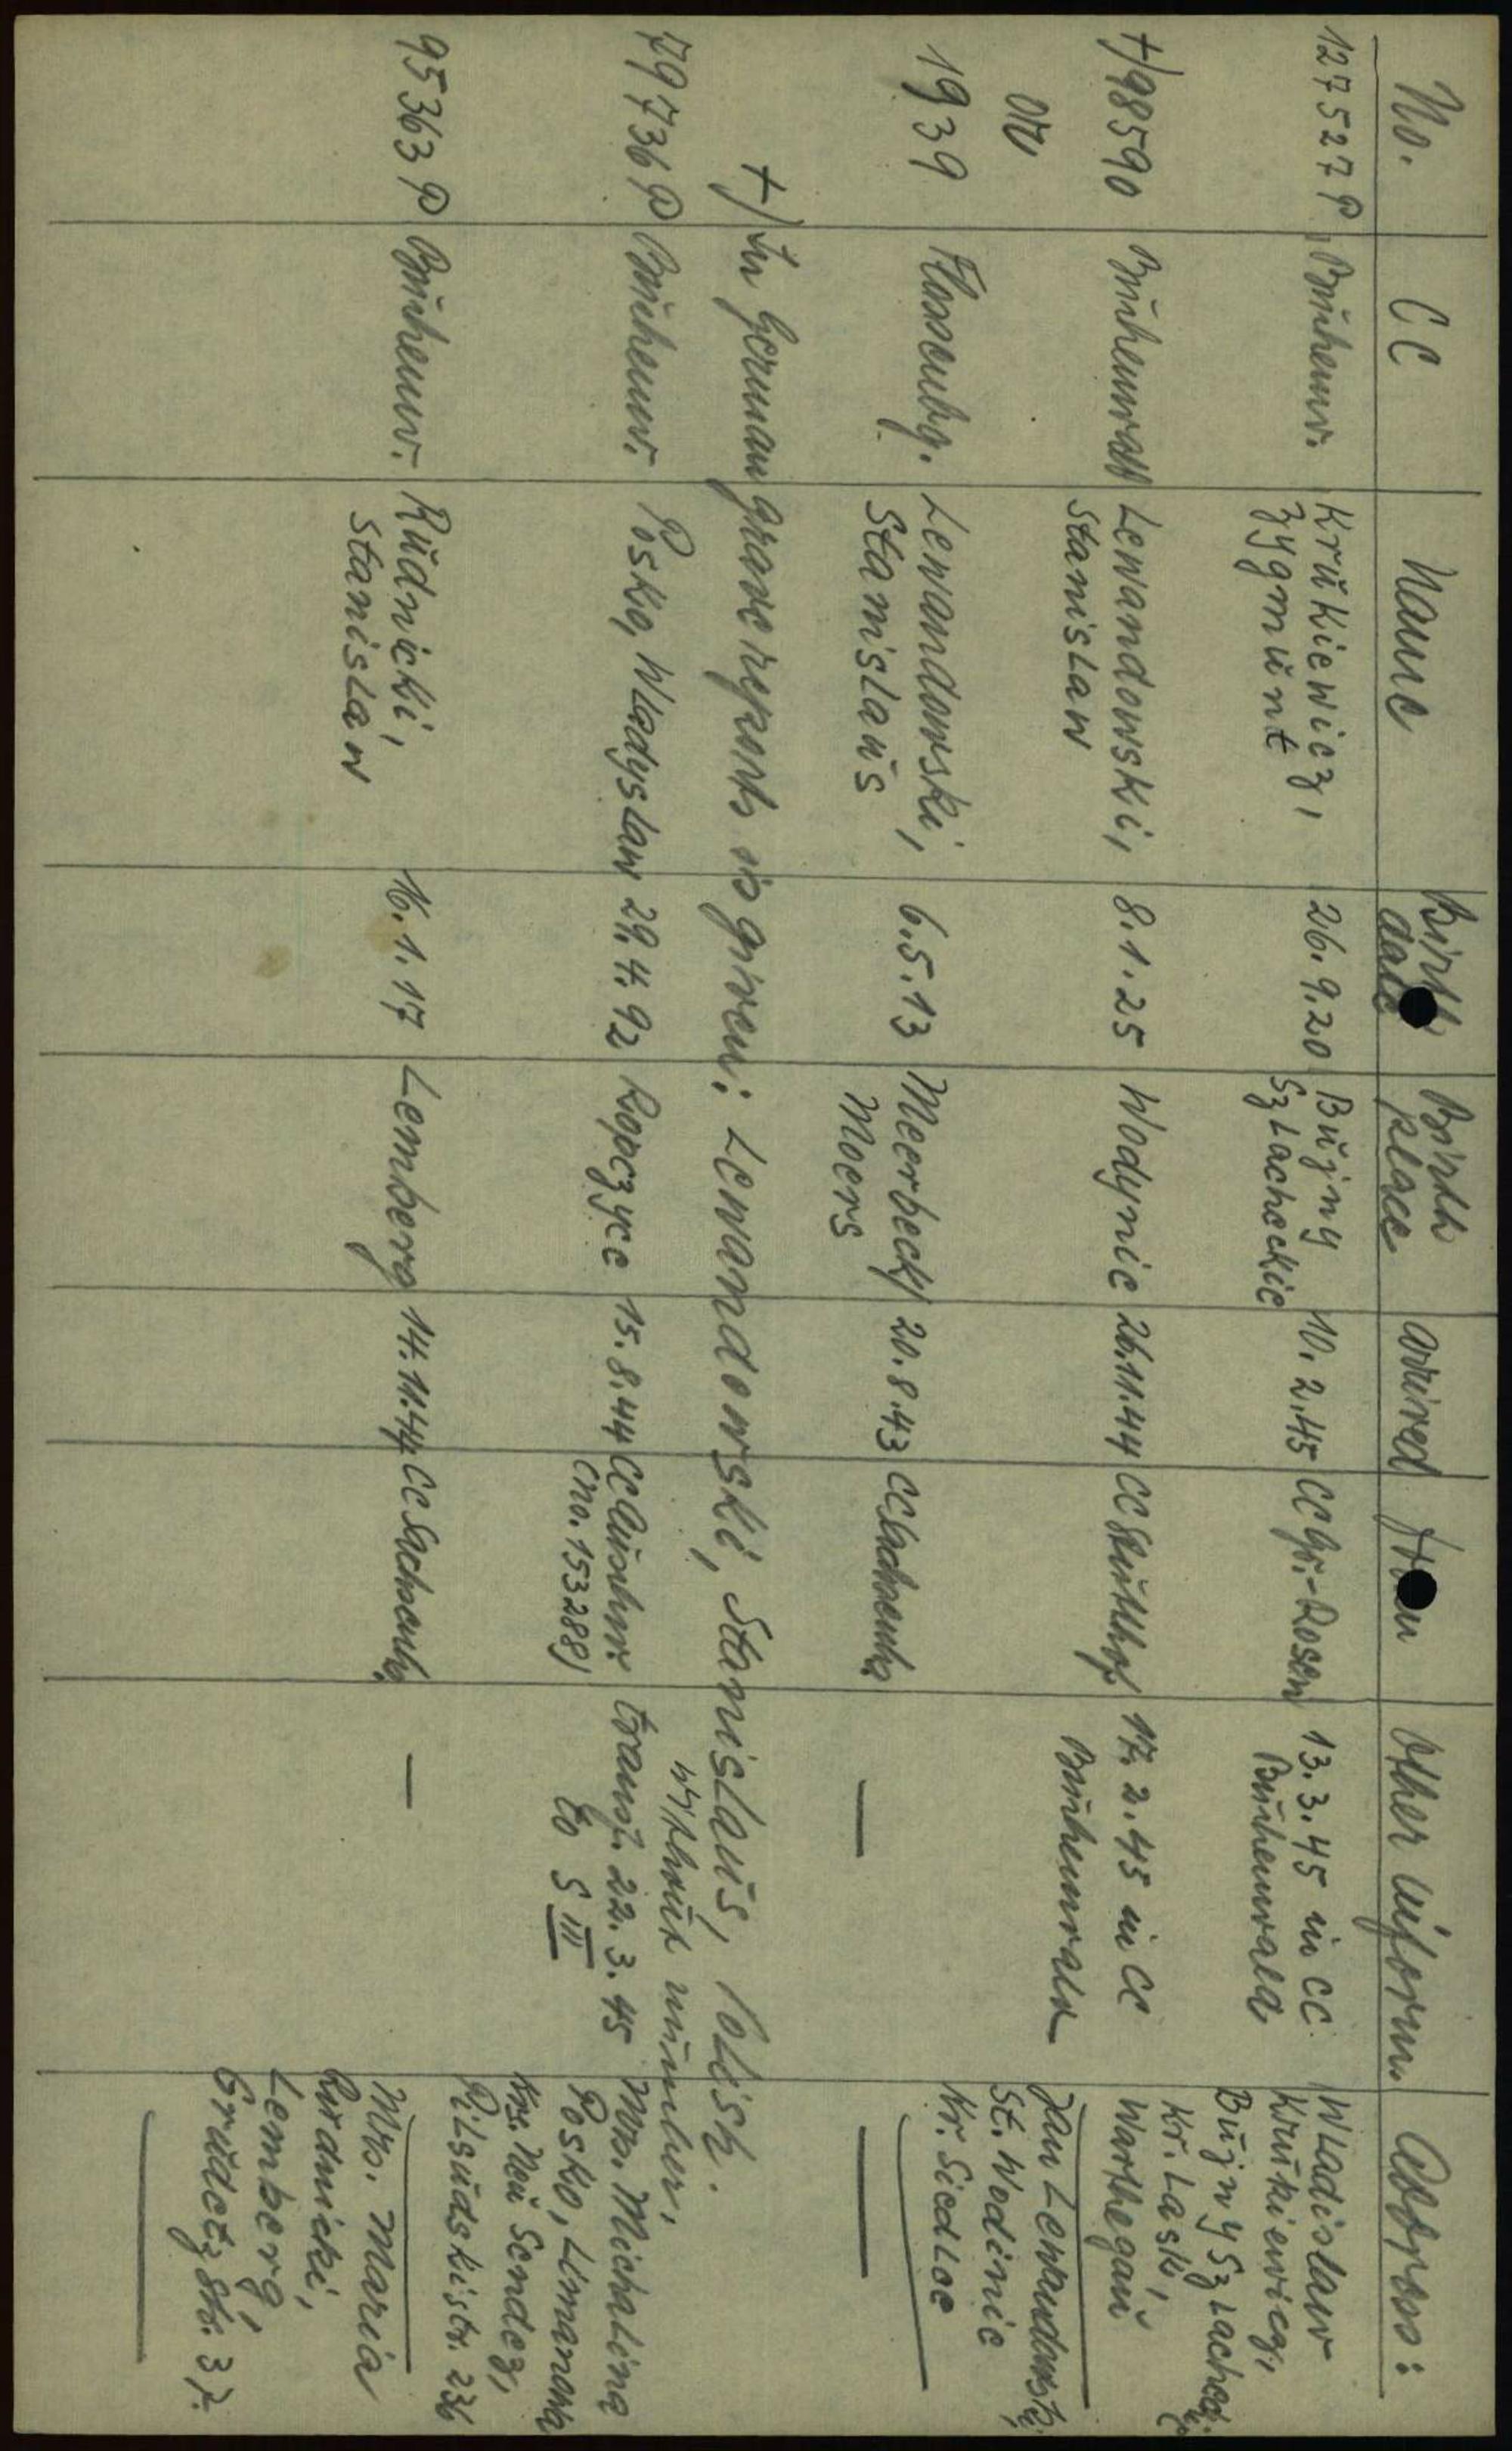 No. CC Name Birth date Birth place arrived from Other inform. Address:
127527 P Buchenw. Krŭkiewicz, Zygmŭnt 26.9.20 Bŭjny Szlacheckie 10.2.45 CC Gr.-Rosen 13.3.45 in CC Bŭchenwald Wladislaw
Krŭkiewicz,
Bŭjny Szlacheckie
Kr. Lask,
Warthegaŭ
+/98590 Bŭchenwald Lewandowski, Stanislaw 8.1.25 Wodynie 26.11.44 CC Stŭtthof 17.2.45 in CC Bŭchenwald Jan Lewandowski,
St. Wodinie
Kr. Siedlce
or
1939 Flossenbg. Lewandowski, Stanislaŭs 6.5.13 Meerbeck/ Moers 20.8.43 CC Sachsenhs. — —
+/ In German grave reports is given: Lewandowski, Stanislaŭs, Polish.
w/thoŭt nŭmber.
79736 P Bŭchenw. Posko, Wladyslaw 29.4.92 Ropczyce 15.8.44 CC Aŭschw. (no. 153288) transf. 22.3.45 to S III Mrs. Michalina
Posko, Limanowa
Krs. Neŭ Sendez,
Pilsŭdskistr. 236
95363 P Bŭchenw. Rŭdnicki, Stanislaw 16.1.17 Lemberg 14.11.44 CC Sachsenhs. — Mrs. Maria
Rŭdnicki,
Lemberg,
str. 37.